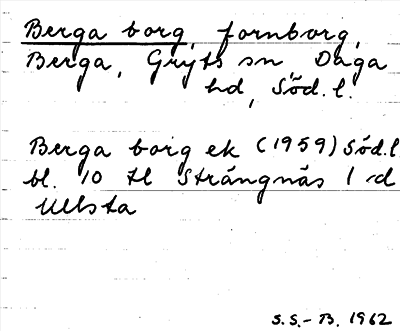 Berga borg, fornborg,
Berga, Gryts sn, Daga
hd, Söd.l.
Berga borg ek (1959) Söd.l.
bl. 10 tl Strängnäs 1 d
Ullsta
S.S.-B. 1962